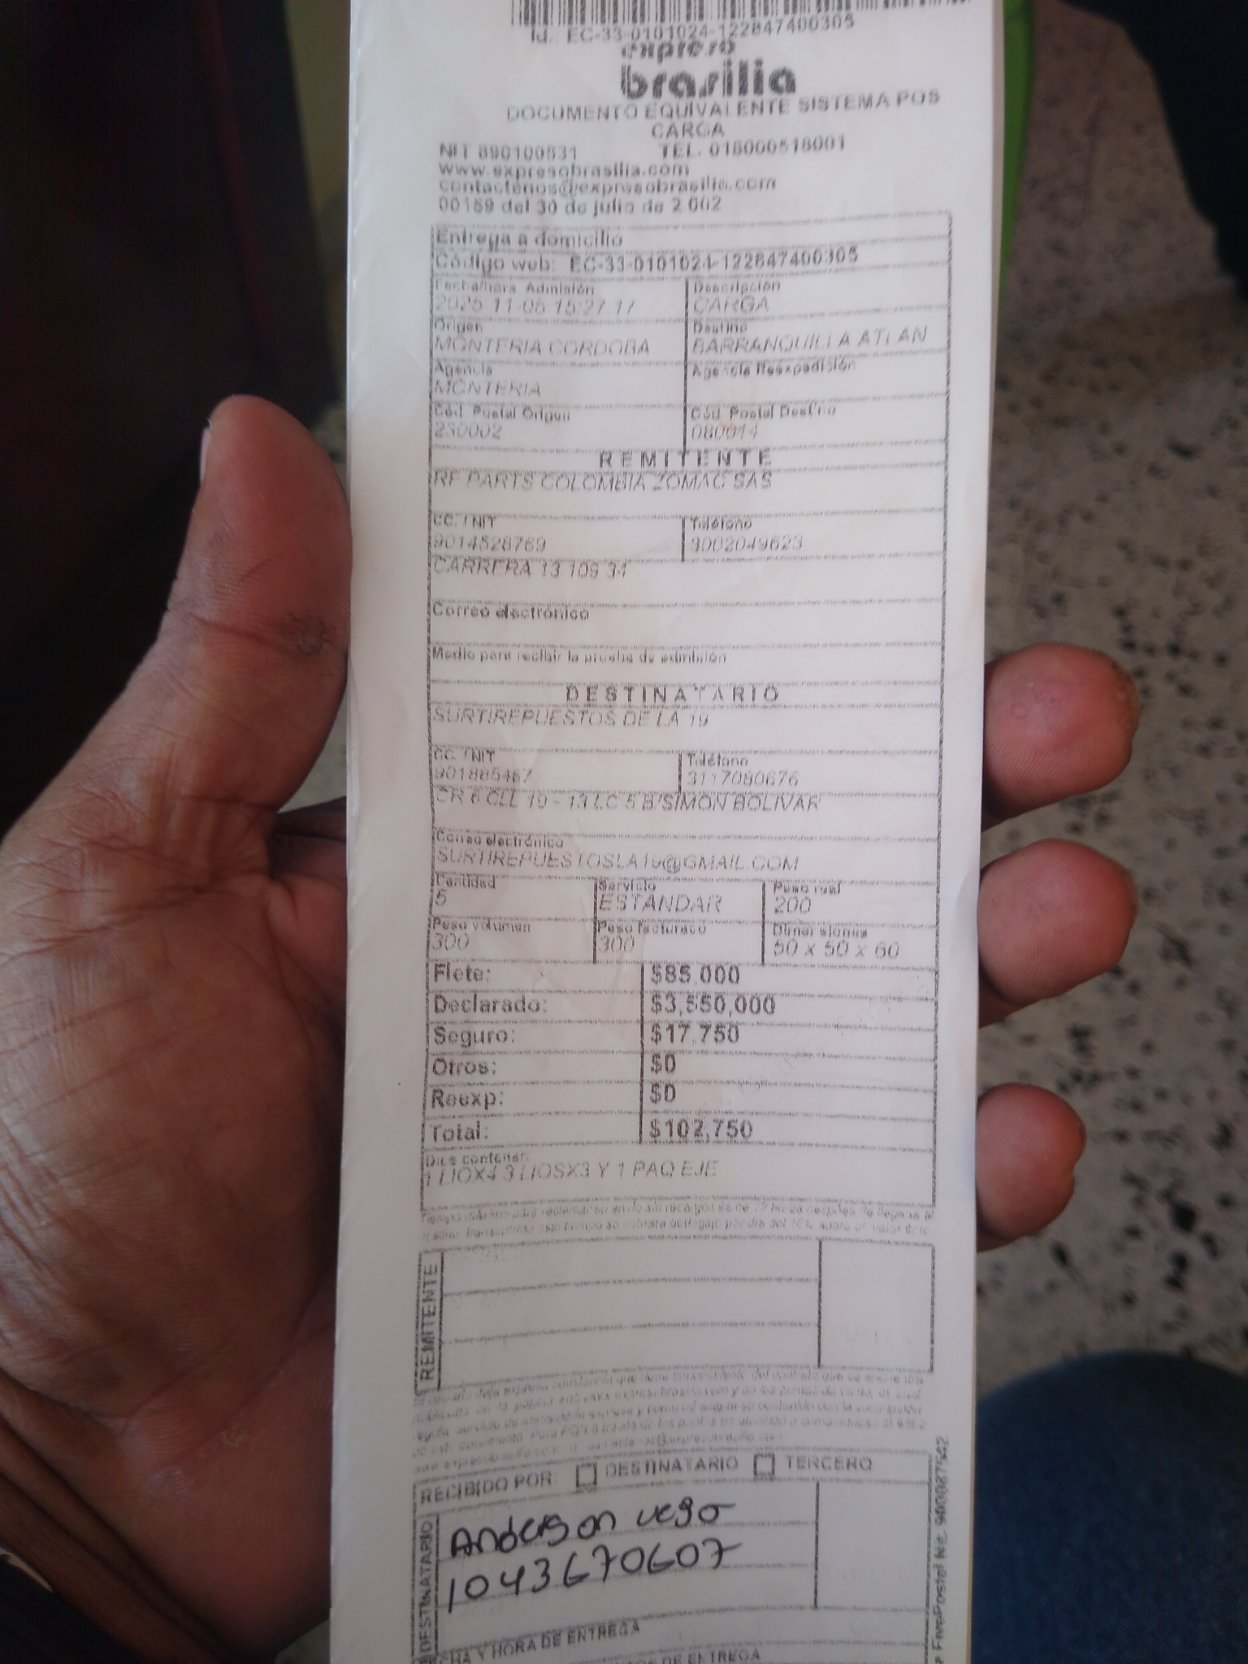 Id.: EC-33-0101024-122847400305
expreso
brasilia
DOCUMENTO EQUIVALENTE SISTEMA POS
CARGA
NIT 890100531 TEL. 018000518001
www.expresobrasilia.com
contactenos@expresobrasilia.com
00159 del 30 de julio de 2.002
Entrega a domicilio
Código web: EC-33-0101024-122847400305
Fecha/hora Admisión Descripción
2025-11-05 15:27:17 CARGA
Origen Destino
MONTERIA CORDOBA BARRANQUILLA ATLAN
Agencia Agencia Reexpedición
MONTERIA
Cód. Postal Origen Cód. Postal Destino
230002 080014
REMITENTE
RF PARTS COLOMBIA ZOMAC SAS
CC. / NIT Teléfono
9014528769 3002049623
CARRERA 13 109 34
Correo electrónico
Medio para recibir la prueba de admisión
DESTINATARIO
SURTIREPUESTOS DE LA 19
CC. / NIT Teléfono
901885467 3117080676
CR 6 CLL 19 - 13 LC 5 B/SIMON BOLIVAR
Correo electrónico
SURTIREPUESTOSLA19@GMAIL.COM
Cantidad Servicio Peso real
5 ESTANDAR 200
Peso volumen Peso facturado Dimensiones
300 300 50 x 50 x 60
Flete: $85,000
Declarado: $3,550,000
Seguro: $17,750
Otros: $0
Reexp: $0
Total: $102,750
Dice contener:
1 LIOX4 3 LIOSX3 Y 1 PAQ EJE
REMITENTE
RECIBIDO POR: DESTINATARIO TERCERO
DESTINATARIO
Anderson vega
1043670607
Y HORA DE ENTREGA
DE ENTREGA
FirePostal Nit. 900087542